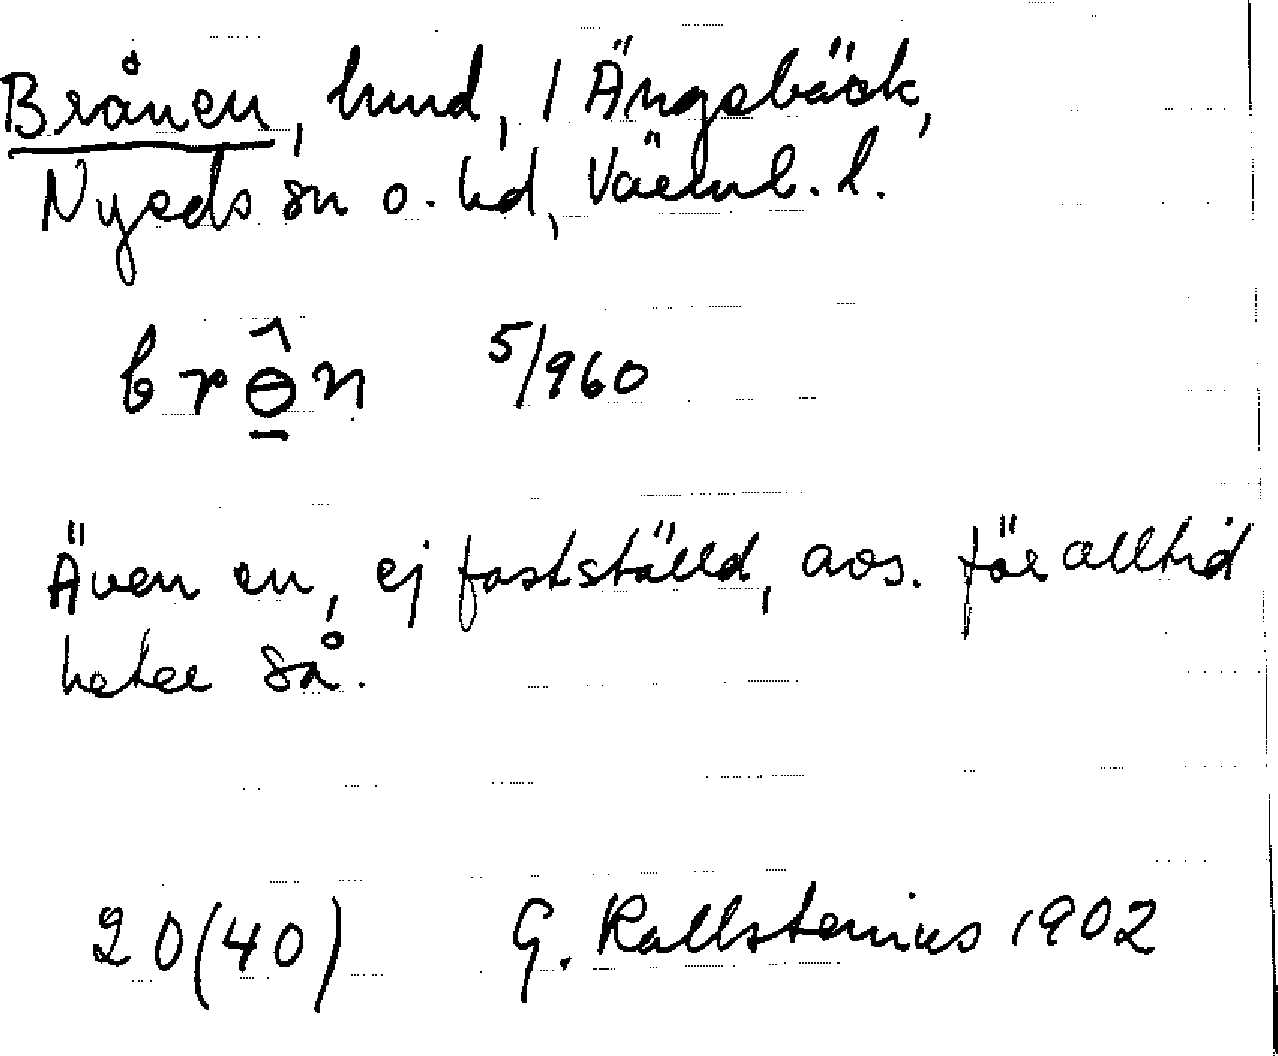 Brånen, hund, i Ängsbäck,
Nyeds sn o. hd, Värml. l.
brɵ̱̂n 5/960
Även en, ej fastställd, avs. för alltid
heter så.
20(40) G. Kallstenius 1902